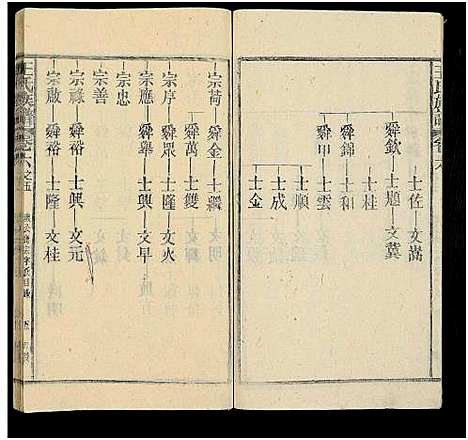 王氏族譜 卷六
士佐 文嵩
舜欽 士題 文冀
士桂
舜錦 士和
舜甲 士雲
士順
士成
士金
宗荷 舜金 士驥 文明
舜萬 士雙
宗序 舜眾 士隆 文火
宗應 舜舉 士興 文早
宗忠
宗善
宗祿 舜裕 士興 文元
宗啟 舜裕 士隆 文桂
王氏族譜 卷六之五